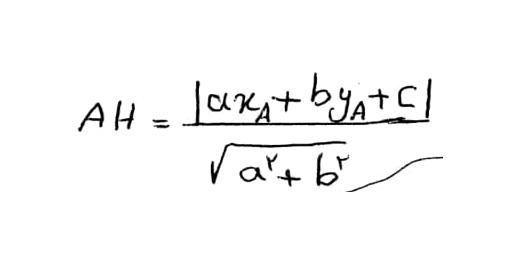 AH = |ax_A + by_A + c| / √(a² + b²)